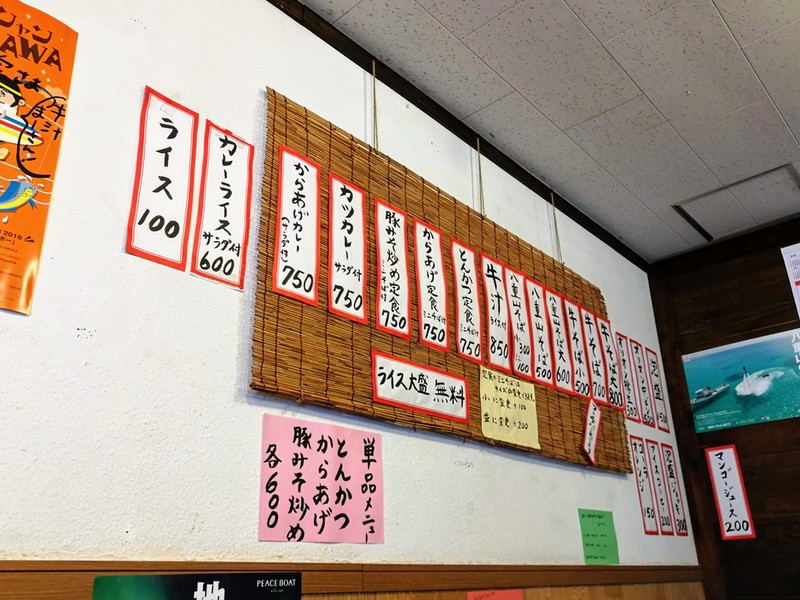 ライス
100
カレーライス
サラダ付
600
からあげカレー
(サラダ付)
750
カツカレー
サラダ付
750
豚みそ炒め定食
ミニそば付
750
からあげ定食
ミニそば付
750
とんかつ定食
ミニそば付
750
牛汁
ライス付
850
八重山そば小
300
八重山そば
500
八重山そば大
600
牛そば小
500
牛そば
700
牛そば大
800
ライス大盛 無料
小に変更 +100
並に変更 +200
単品メニュー
とんかつ
からあげ
豚みそ炒め
各600
マンゴージュース
200
泡盛
オレンジ
150
200
300
PEACE BOAT
AWA
牛汁
2018